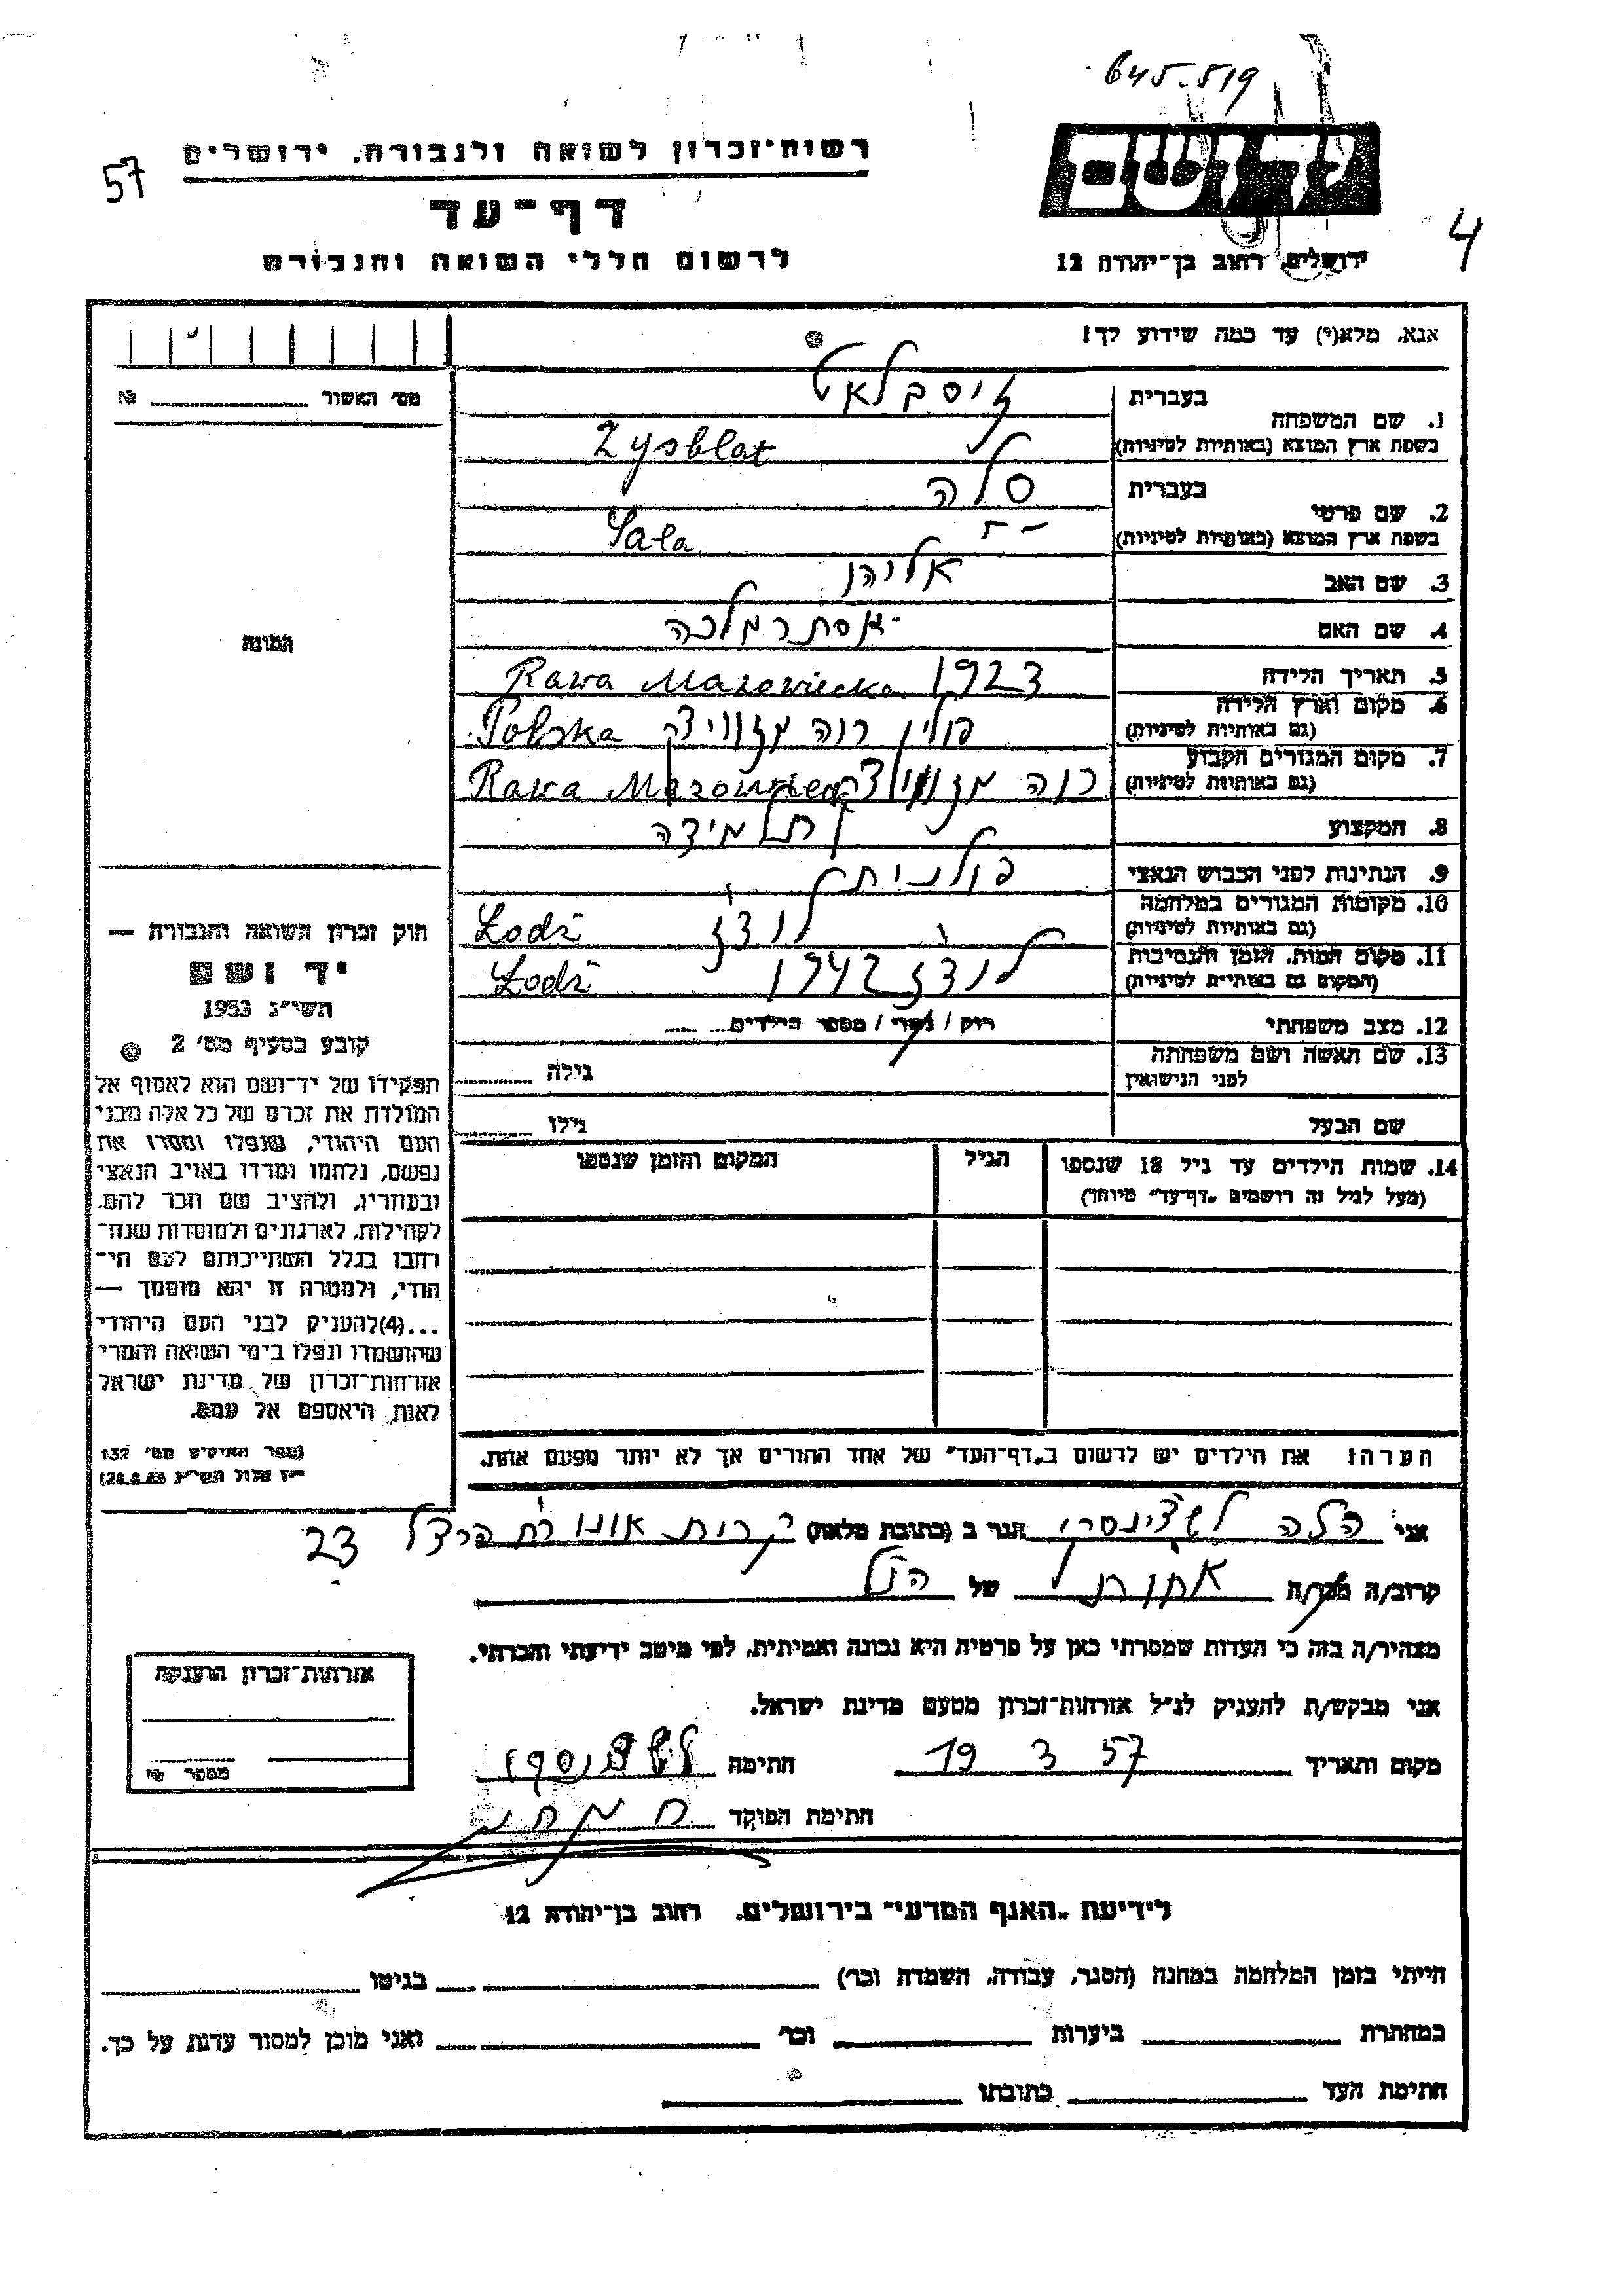 645.519
יד ושם
רשות-זכרון לשואה ולגבורה, ירושלים
57
דף-עד
4
לרשום חללי השואה והגבורה
ירושלים, רחוב בן-יהודה 12
אנא, מלא(י) עד כמה שידוע לך!
מס׳ האשור № 
1. שם המשפחה
בעברית זיסבלאט
בשפת ארץ המוצא (באותיות לטיניות) Zysblat
2. שם פרטי
בעברית סלה
בשפת ארץ המוצא (באותיות לטיניות) Sala
3. שם האב אליהו
4. שם האם אסתר מלכה
התמונה
5. תאריך הלידה 1923 Rawa Mazowiecka
6. מקום וארץ הלידה
(גם באותיות לטיניות) פולין רוה מזוויצק Polska
7. מקום המגורים הקבוע
(גם באותיות לטיניות) רוה Rawa
8. המקצוע תלמידה
9. הנתינות לפני הכבוש הנאצי פולנית
10. מקומות המגורים במלחמה
(גם באותיות לטיניות) לודז Łodź
11. מקום המות, הזמן והנסיבות
(המקום גם באותיות לטיניות) לודז 1942 Łodź
12. מצב משפחתי רוק / נשוי / מספר הילדים
13. שם האשה ושם משפחתה
לפני הנישואין גילה
שם הבעל גילו
14. שמות הילדים עד גיל 18 שנספו
(מעל לגיל זה רושמים „דף-עד״ מיוחד)
הגיל
המקום והזמן שנספו
חוק זכרון השואה והגבורה —
יד ושם
תשי״ג 1953
קובע בסעיף מס׳ 2
תפקידו של יד-ושם הוא לאסוף אל
המולדת את זכרם של כל אלה מבני
העם היהודי, שנפלו ומסרו את
נפשם, נלחמו ומרדו באויב הנאצי
ובעוזריו, ולהציב שם וזכר להם,
לקהילות, לארגונים ולמוסדות שנח-
רבו בגלל השתייכותם לעם הי-
הודי, ולמטרה זו יהא מוסמך —
...(4)להעניק לבני העם היהודי
שהושמדו ונפלו בימי השואה והמרי
אזרחות-זכרון של מדינת ישראל
לאות היאספם אל עמם.
(ספר החוקים מס׳ 132
הערה: את הילדים יש לרשום ב„דף-העד״ של אחד ההורים אך לא יותר מפעם אחת.
אני הלה לשצינסקי הגר ב (כתובת מלאה) קרית אונו רח הרצל 23
קרוב/ה מכר/ה אחות של הנ״ל
מצהיר/ה בזה כי העדות שמסרתי כאן על פרטיה היא נכונה ואמיתית, לפי מיטב ידיעתי והכרתי.
אני מבקש/ת להעניק לנ״ל אזרחות-זכרון מטעם מדינת ישראל.
מקום ותאריך 19 3 57 חתימה
חתימת הפוקד
אזרחות-זכרון הוענקה
מספר №
לידיעת „האגף המדעי״ בירושלים, רחוב בן-יהודה 12
הייתי בזמן המלחמה במחנה (הסגר, עבודה, השמדה וכו׳) בגיטו
במחתרת ביערות וכו׳ ואני מוכן למסור עדות על כך.
חתימת העד כתובתו